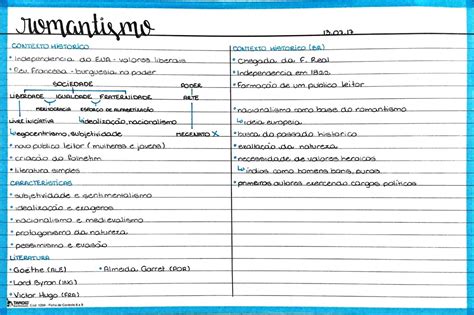 romantismo
13.02.17
CONTEXTO HISTÓRICO
• Independência do EUA - valores liberais
• Rev. Francesa - burguesia no poder
SOCIEDADE PODER
LIBERDADE IGUALDADE FRATERNIDADE ARTE
MERITOCRACIA ESFORÇO DE ALFABETIZAÇÃO
LIVRE INICIATIVA ↳idealização, nacionalismo
↳egocentrismo, subjetividade MECENATO X
• novo público leitor (mulheres e jovens)
• criação do folhetim
• literatura simples
CARACTERÍSTICAS
• subjetividade e sentimentalismo
• idealização e exageros
• nacionalismo e medievalismo
• protagonismo da natureza
• pessimismo e evasão
LITERATURA
• Goethe (ALE) • Almeida Garret (POR)
• Lord Byron (ING)
• Victor Hugo (FRA)
CONTEXTO HISTÓRICO (BR)
• chegada da F. Real
• Independência em 1822
• Formação de um público leitor
• nacionalismo como base do romantismo
↳ideia europeia
• busca do passado histórico
• exaltação da natureza
• necessidade de valores heroicos
↳índios como homens bons, puros
• primeiros autores exercendo cargos políticos